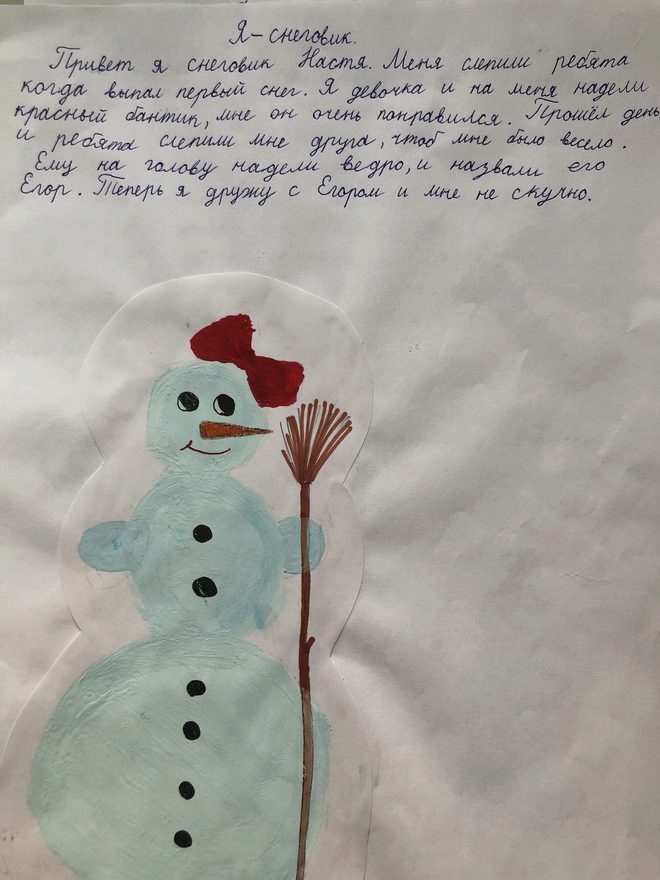 Я - снеговик.
Привет я снеговик Настя. Меня слепили ребята
когда выпал первый снег. Я девочка и на меня надели
красный бантик, мне он очень понравился. Прошёл день
и ребята слепили мне друга, чтоб мне было весело.
Ему на голову надели ведро, и назвали его
Егор. Теперь я дружу с Егором и мне не скучно.